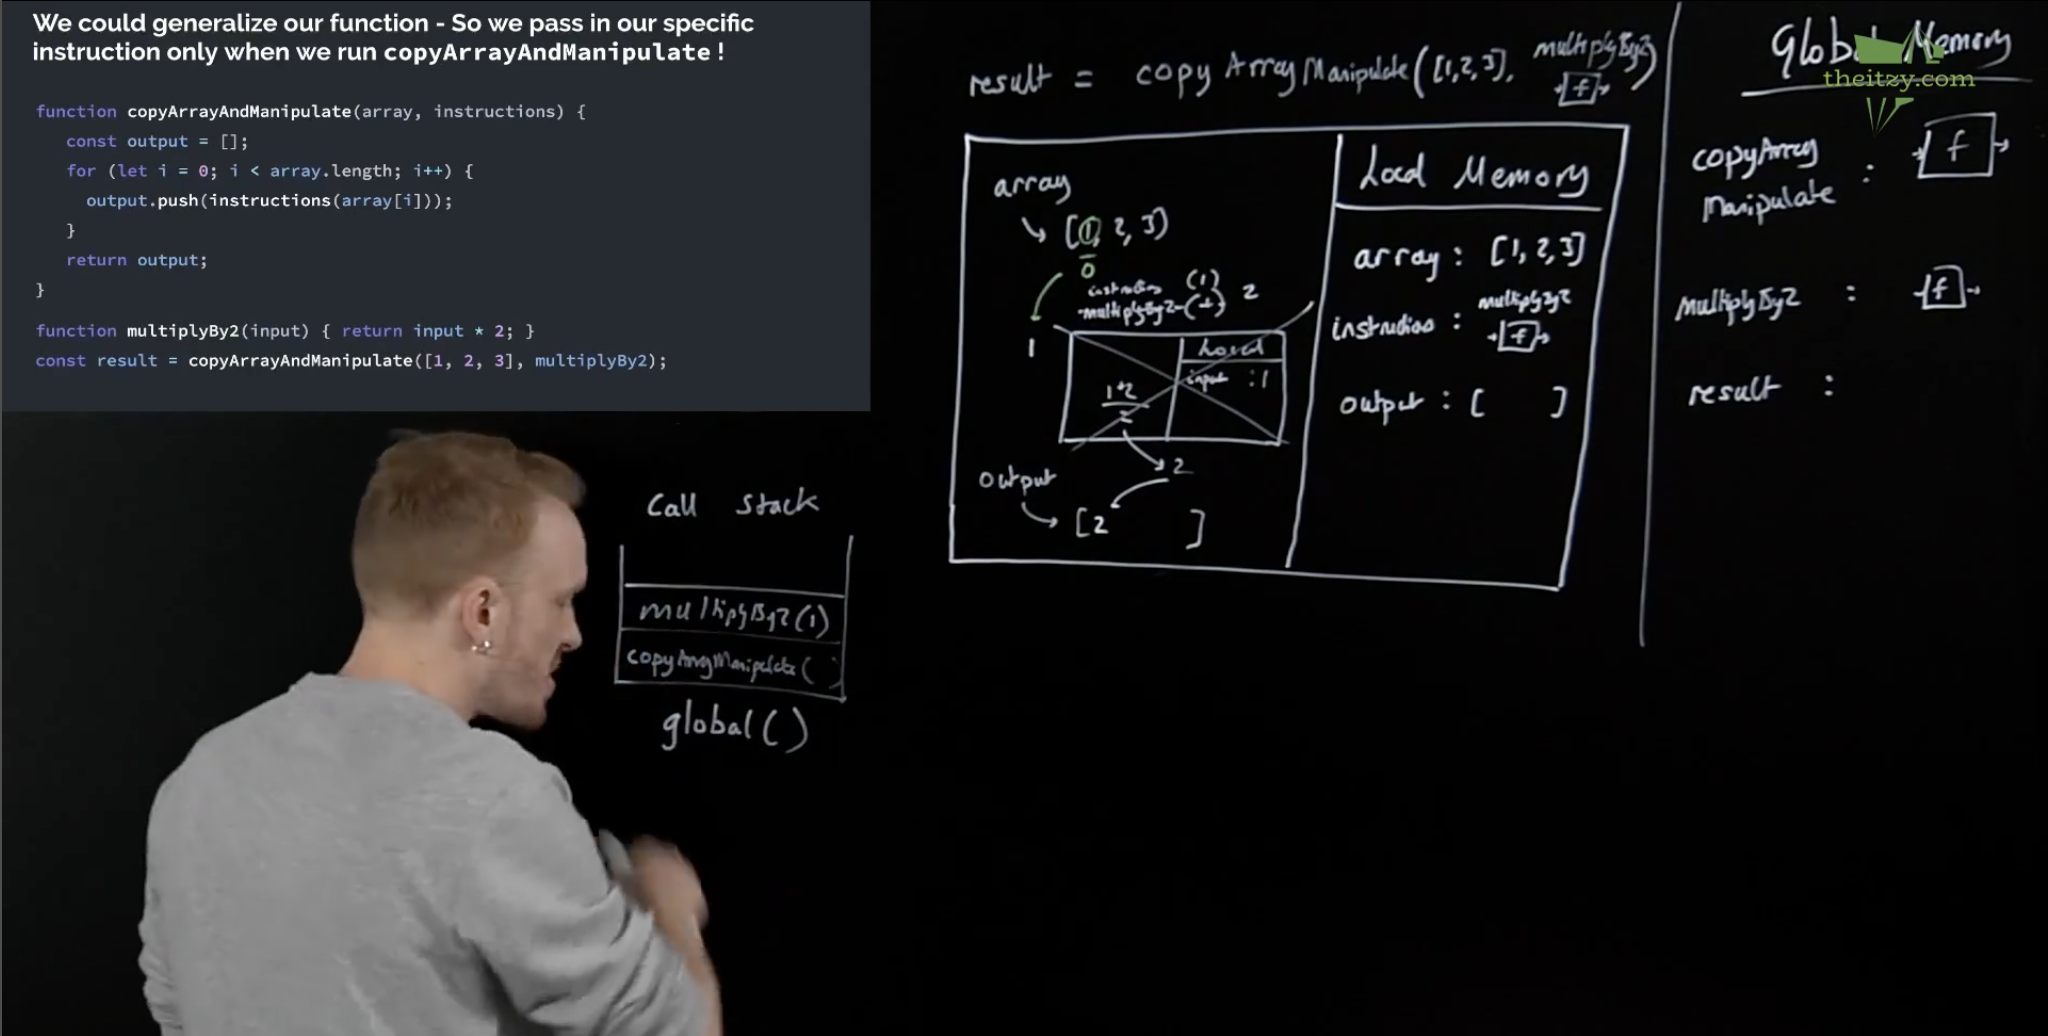 We could generalize our function - So we pass in our specific
instruction only when we run copyArrayAndManipulate !
function copyArrayAndManipulate(array, instructions) {
const output = [];
for (let i = 0; i < array.length; i++) {
output.push(instructions(array[i]));
}
return output;
}
function multiplyBy2(input) { return input * 2; }
const result = copyArrayAndManipulate([1, 2, 3], multiplyBy2);
result = copyArrayManipulate([1,2,3], multiplyBy2)
f
array
[1, 2, 3]
0
1
(1)
multiplyBy2
2
Local
input : 1
1*2
2
2
output
[2 ]
Local Memory
array : [1, 2, 3]
instructions : multiplyBy2
f
output : [ ]
Global Memory
theitzy.com
copyArray
Manipulate : f
multiplyBy2 : f
result :
Call Stack
multiplyBy2(1)
copyArrayManipulate( )
global()